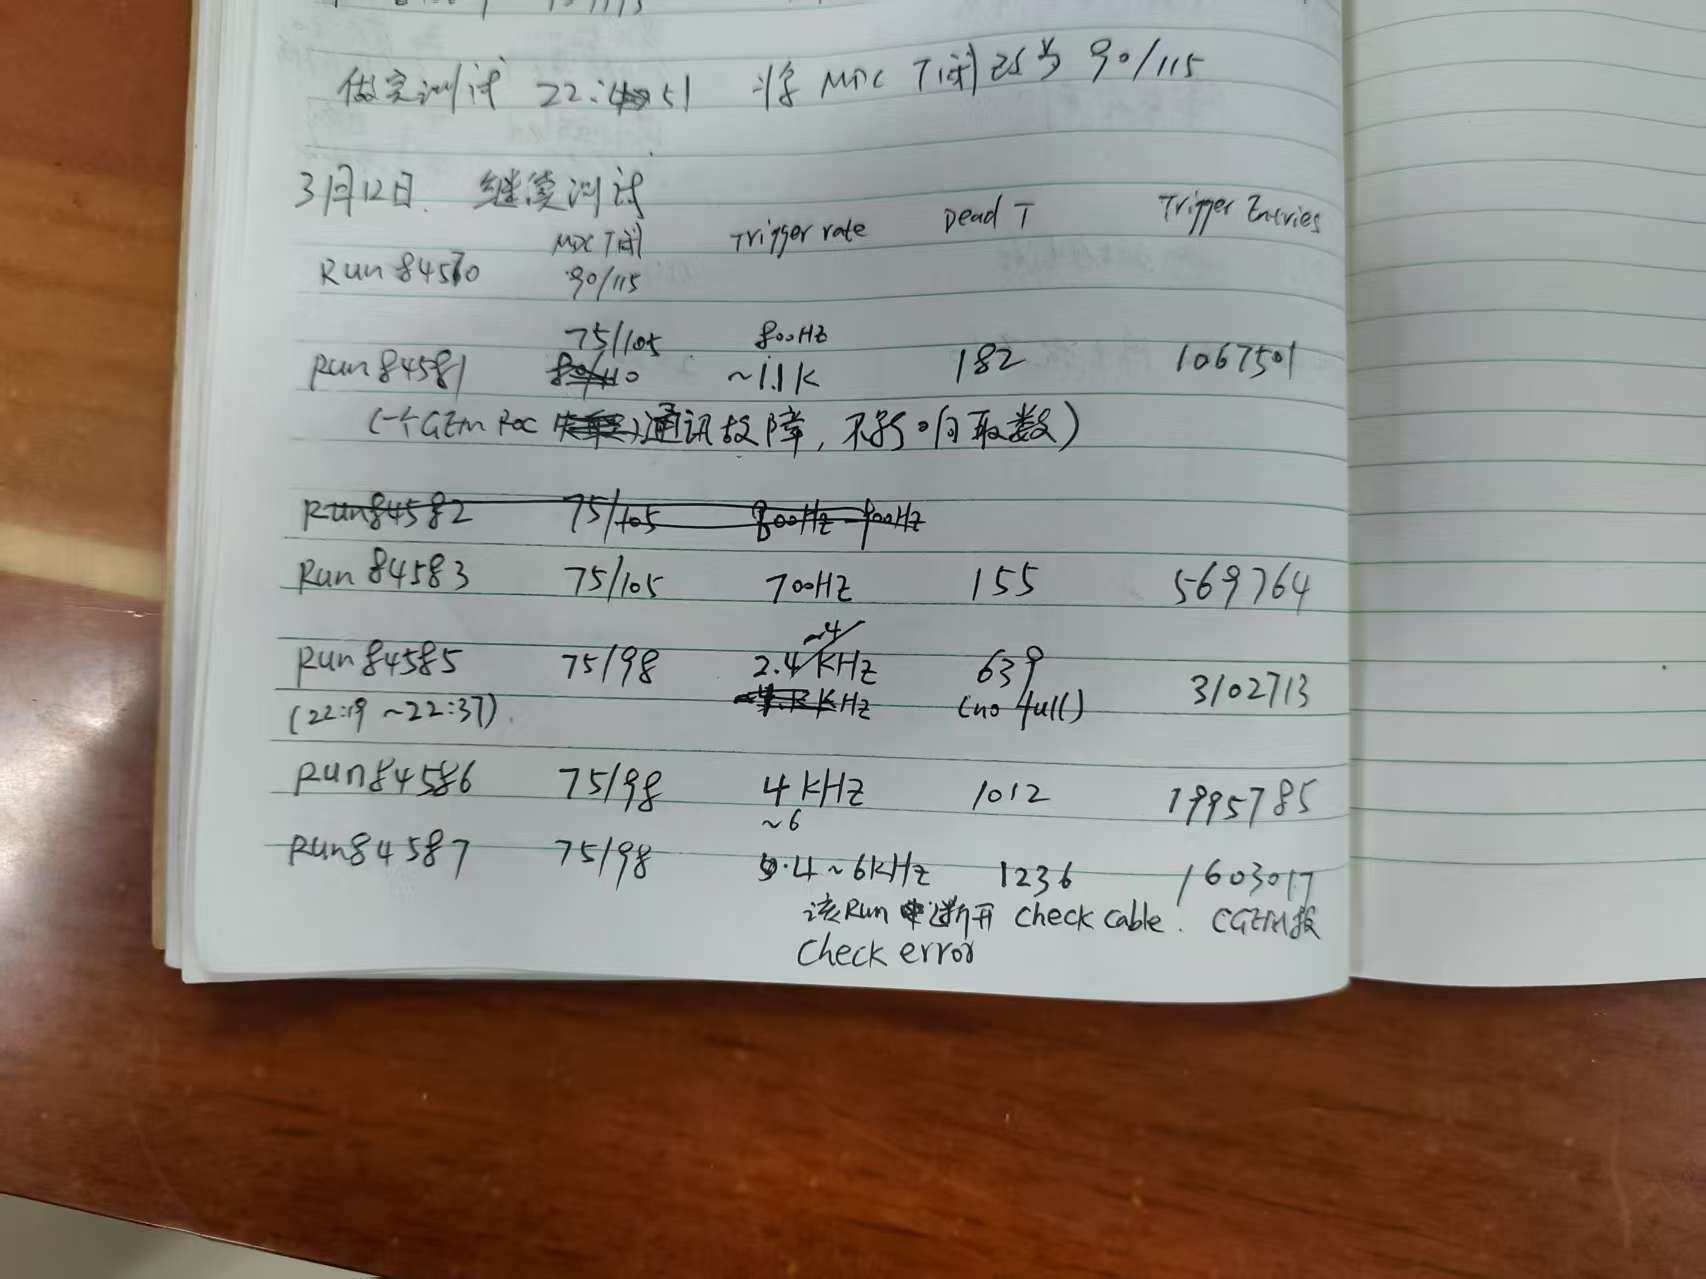 做完测试 22:51 将 MDC T阈改为 90/115
3月12日. 继续测试
MDC T阈 Trigger rate Dead T Trigger Entries
Run 84570 90/115
75/105 800Hz
Run 84581 ~1.1K 182 1067501
(一个GEM ROC 通讯故障, 不影响取数)
Run84582 75/105 800Hz-900Hz
Run 84583 75/105 700Hz 155 569764
~4
Run 84585 75/98 2.4 KHz 639 3102713
(22:19 ~22:37). KHz (no full)
Run84586 75/98 4 KHz 1012 1995785
~6
Run84587 75/98 5.4~6KHz 1236 1603017
该Run 断开 check cable. CGEM报
Check error